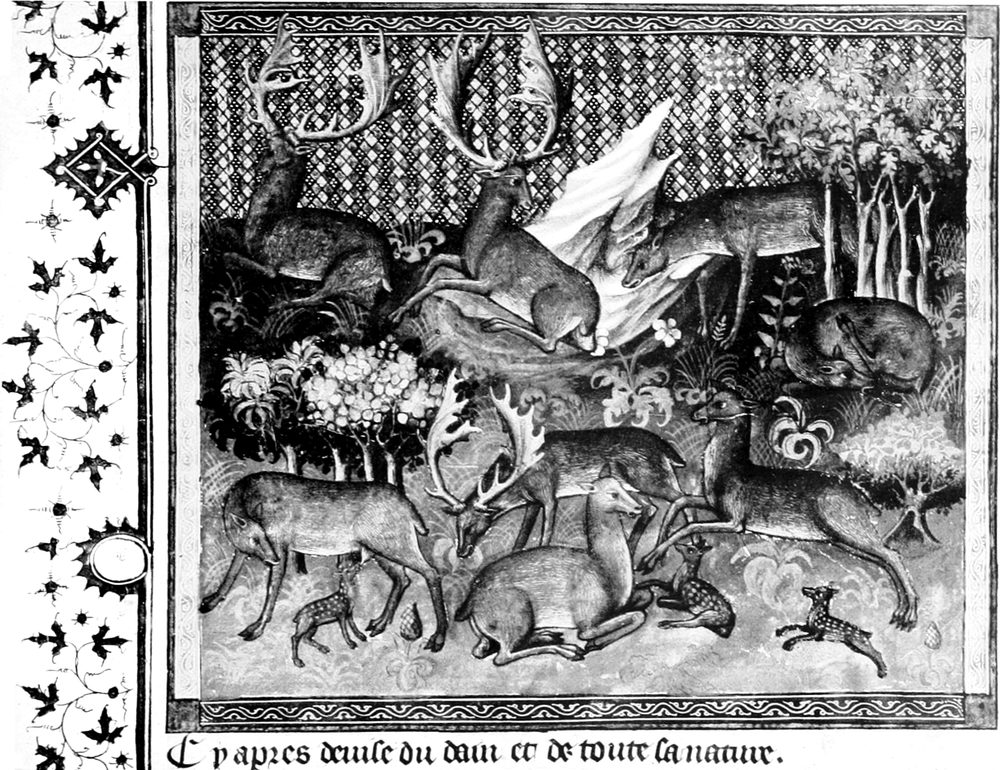 Cy apres deuise du dain et de toute sa nature.